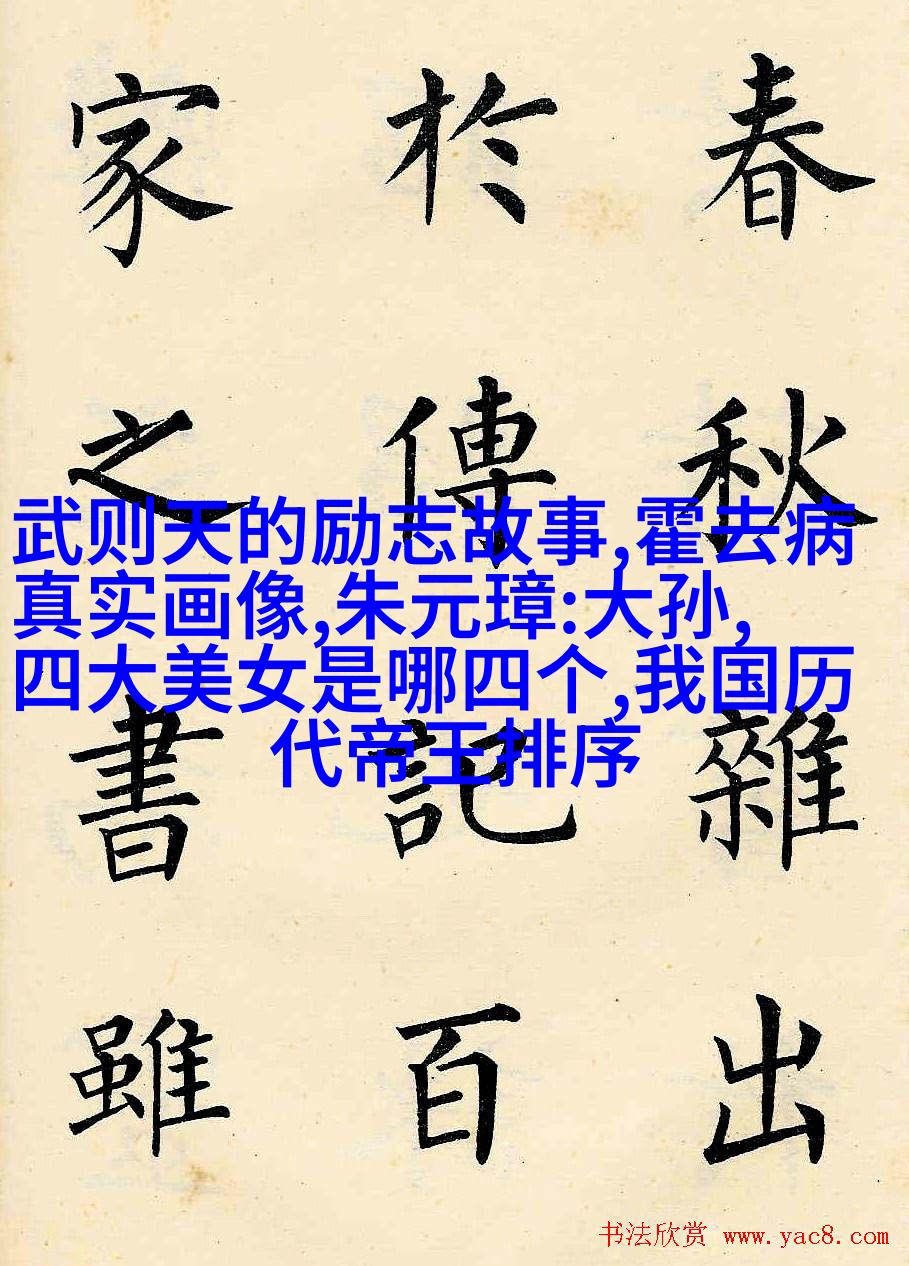 春秋雜出
於傳記百
家之書雖
武则天的励志故事,霍去病
真实画像,朱元璋:大孙,
四大美女是哪四个,我国历
代帝王排序
书法欣赏 www.yac8.com